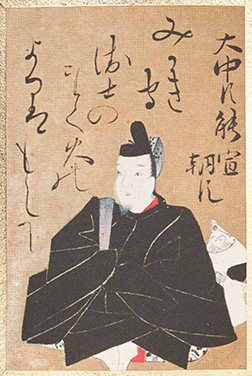 大中臣能宣
朝臣
みかき守
衛士の
たく火の
よるは